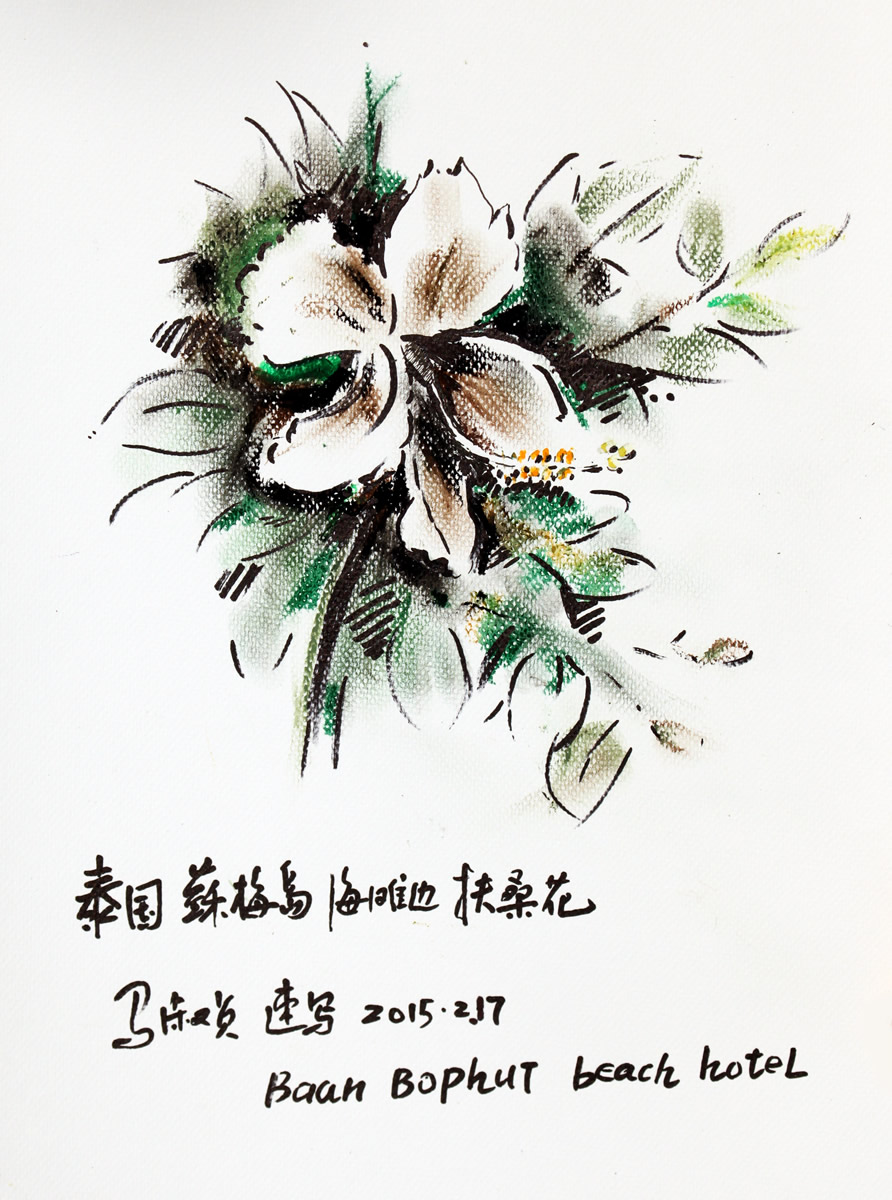 泰国 蘇梅岛 海滩边 扶桑花
马 速写 2015.2.17
Baan BOphuT beach hoteL